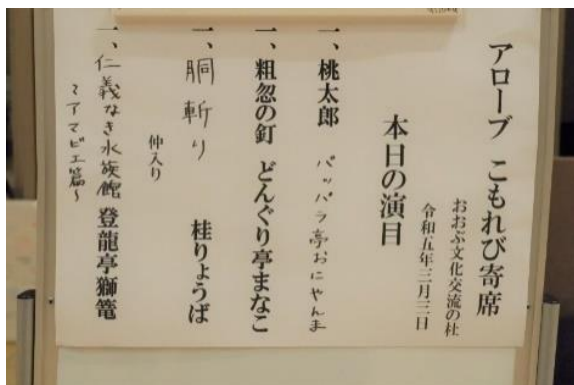 アローブ こもれび寄席
おおぶ文化交流の杜
令和五年三月三日
本日の演目
一、桃太郎 パッパラ亭おにやんま
一、粗忽の釘 どんぐり亭まなこ
一、胴斬り 桂りょうば
仲入り
一、仁義なき水族館 登龍亭獅篭
～アマビエ篇～